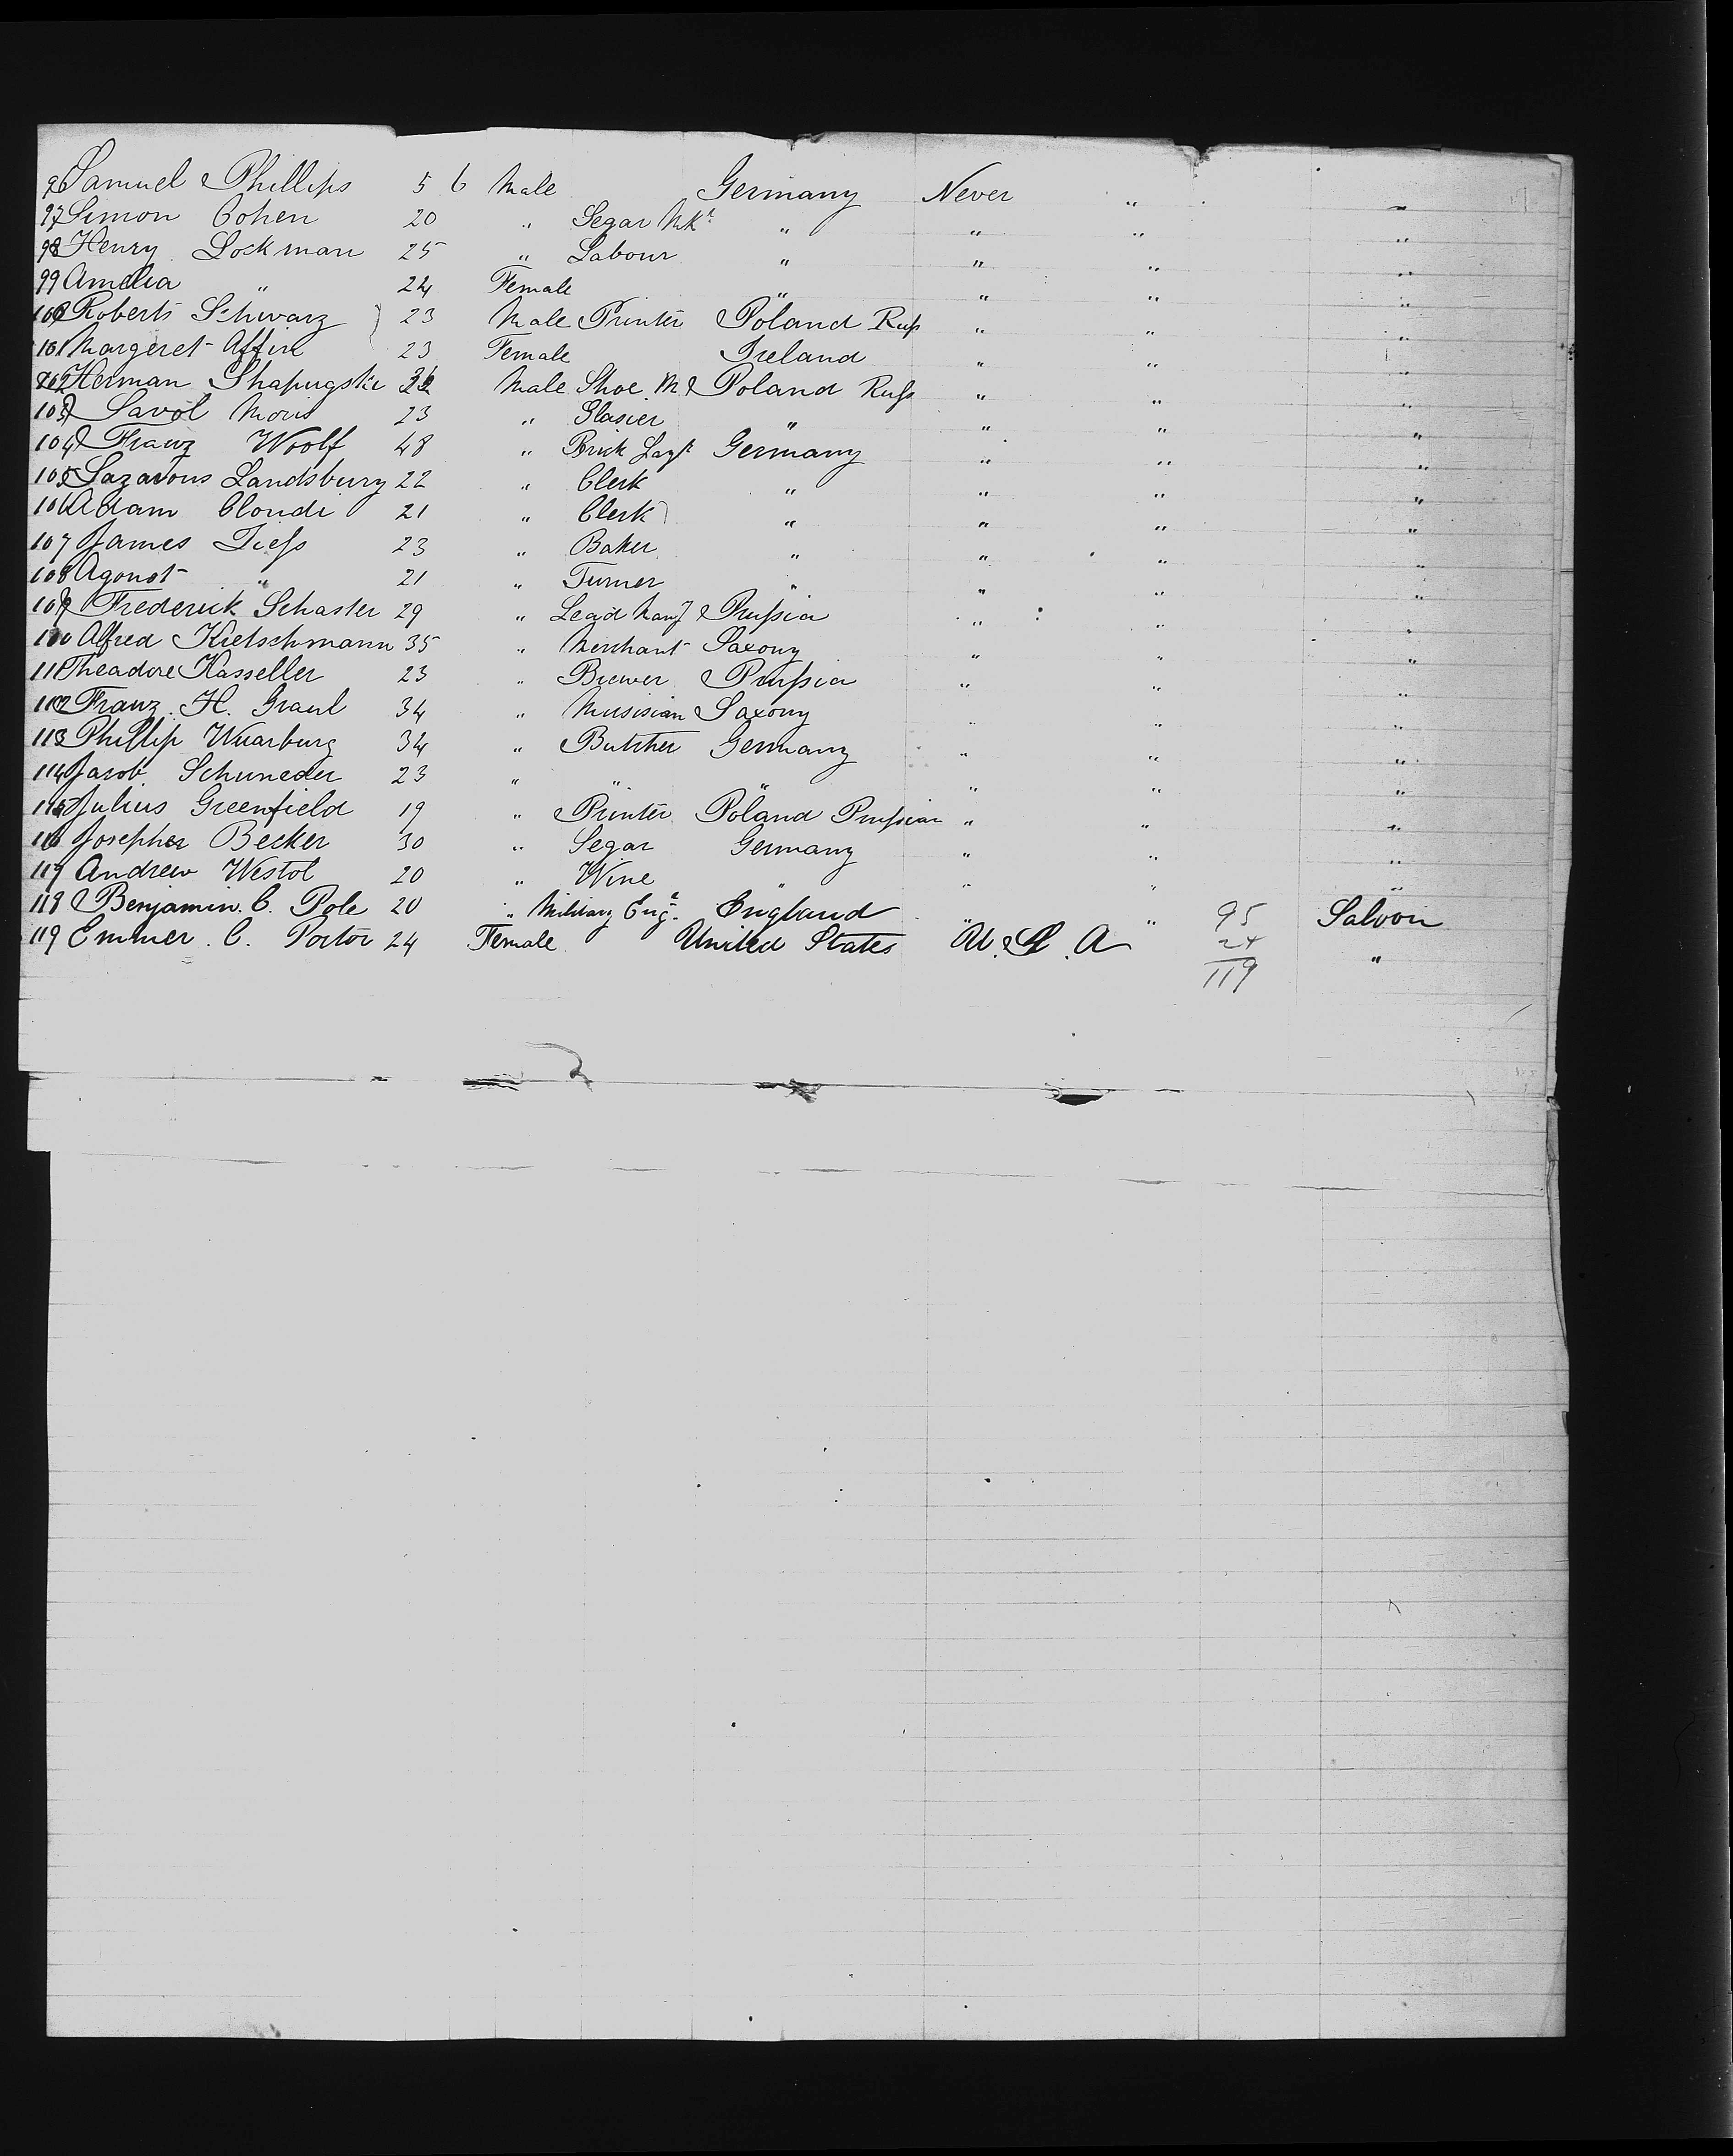 96 Samuel Phillips 5 6 Male Germany Never " "
97 Simon Cohen 20 " Segar Mkr " " " "
98 Henry Lockman 25 " Labour " " " "
99 Amelia " 24 Female " " " "
100 Roberts Schwarz 23 Male Printer Poland Russ " " "
101 Margeret Affire 23 Female Ireland " " "
102 Herman Male Shoe M Poland Russ " " "
103 Savol Morris 23 " Glasier " " " "
104 Franz Woolf 48 " Brick Layr Germany " " "
105 Lazarous Landsburg 22 " Clerk " " " "
106 Adam Cloudi 21 " Clerk " " " "
107 James Tiess 23 " Baker " " " "
108 Agonst " 21 " Turner " " " "
109 Frederick Schaster 29 " Lead Manf Prussia " " "
110 Alfred Kretschmann 35 " Merchant Saxony " " "
111 Theadore Kasseller 23 " Brewer Prussia " " "
112 Franz. H. Graul 34 " Musisian Saxony " " "
113 Phillip Wuarburg 34 " Butcher Germany " " "
114 Jacob Schuneder 23 " " " " " "
115 Julius Greenfield 19 " Printer Poland Prussian " " "
116 Josepher Becker 30 " Segar Germany " " "
117 Andrew Westol 20 " Wine " " " "
118 Benjamin. C. Pole 20 " Military Engr England " " 95 Saloon
119 Emmer. C. Portor 24 Female United States U. S. A 24 "
119